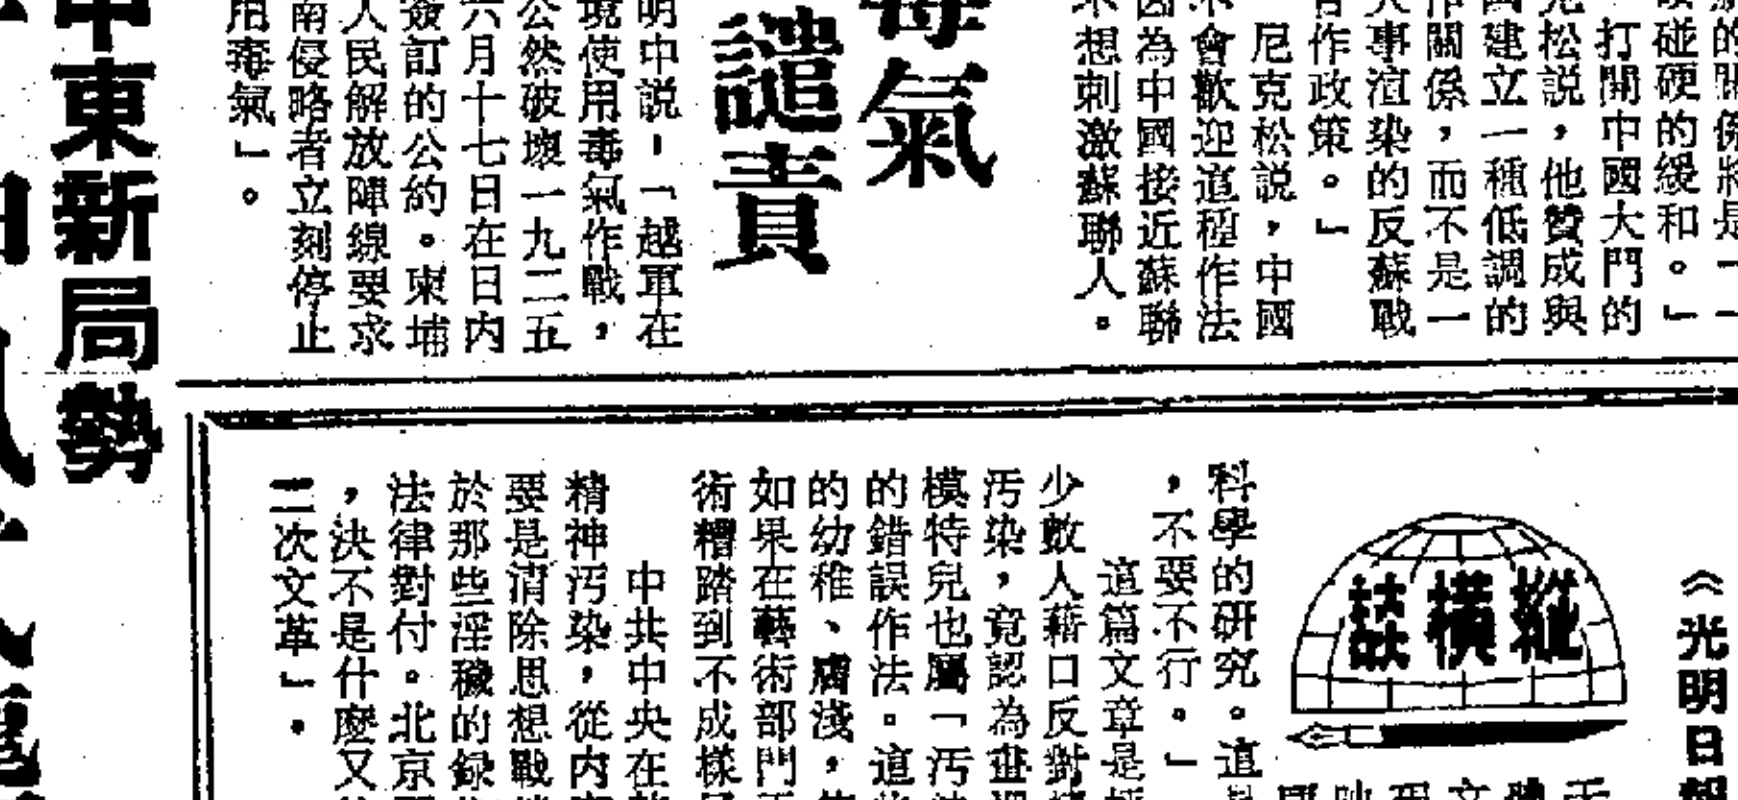 的關係將是一
碰硬的緩和。」
打開中國大門的
克松説，他贊成與
建立一種低調的
作關係，而不是一
大事渲染的反蘇戰
作政策。」
尼克松説，中國
不會歡迎這種作法
因為中國接近蘇聯
不想刺激蘇聯人。
毒氣
譴責
明中説，「越軍在
境使用毒氣作戰，
公然破壞一九二五
六月十七日在日内
簽訂的公約。柬埔
人民解放陣線要求
南侵略者立刻停止
用毒氣」。
中東新局勢
《光明日報
縱橫談
科學的研究。這
，不要不行。」
這篇文章是
少數人藉口反對
污染，竟認為畫
模特兒也屬「污
的錯誤作法。這
的幼稚、膚淺，
如果在藝術部門
術糟踏到不成樣
中共中央在
精神污染，從内
要是清除思想戰
於那些淫穢的録
法律對付。北京
，決不是什麼又
二次文革」.